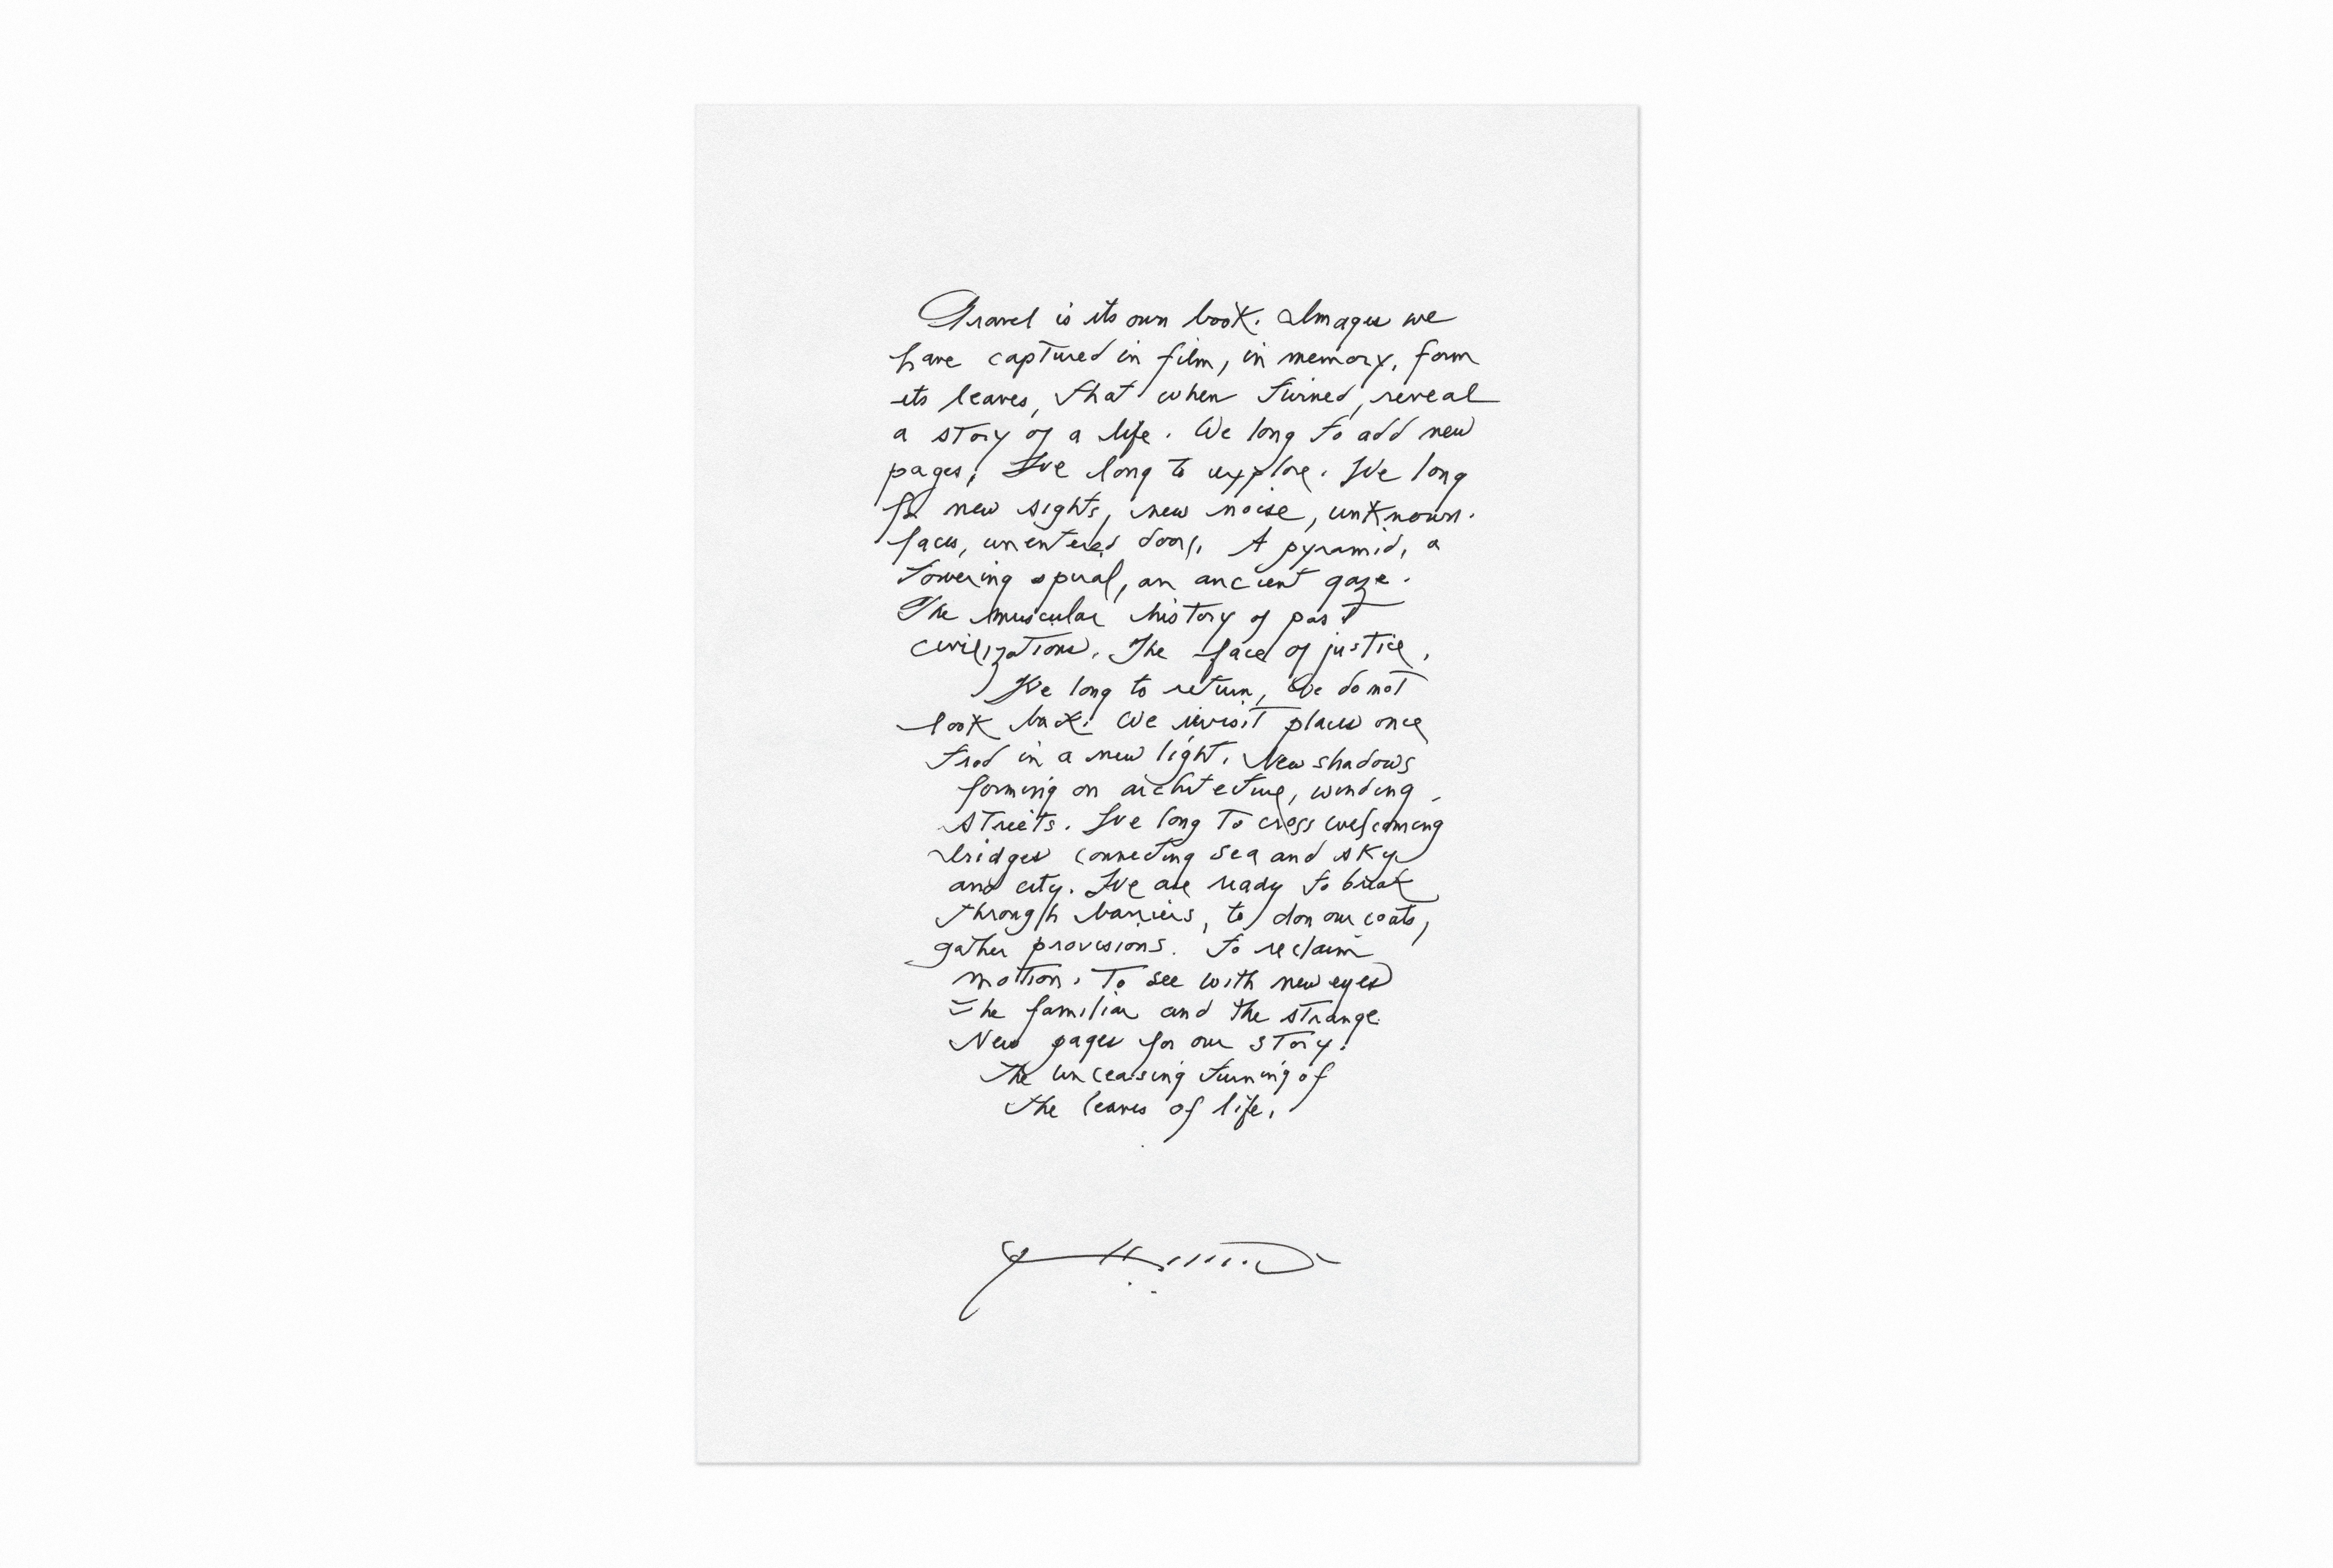 Travel is its own book. Images we
have captured in film, in memory, form
its leaves, that when turned, reveal
a story of a life. We long to add new
pages. We long to explore. We long
for new sights, new noise, unknown
faces, unentered doors. A pyramid, a
towering spiral, an ancient gaze.
The muscular history of past
civilizations. The face of justice.
We long to return, we do not
look back. We revisit places once
trod in a new light. New shadows
forming on architecture, winding
streets. We long to cross welcoming
bridges connecting sea and sky
and city. We are ready to break
through barriers, to don our coats,
gather provisions. To reclaim
motion. To see with new eyes
the familiar and the strange.
New pages for our story.
The unceasing turning of
the leaves of life.